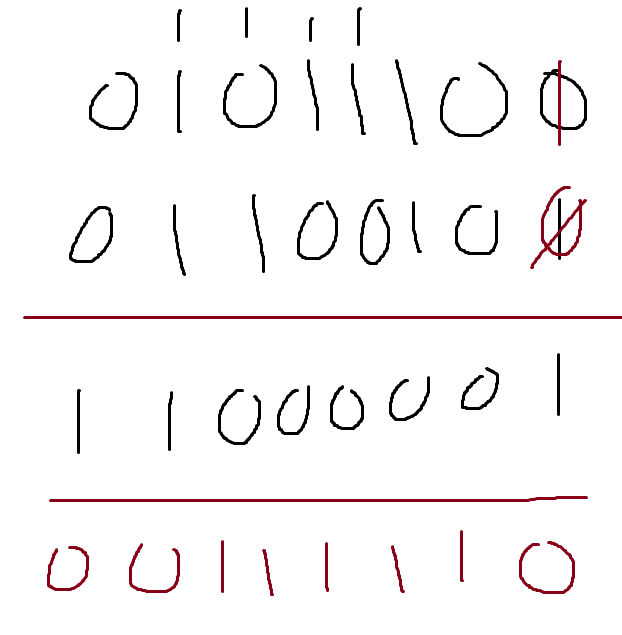 1 1 1 1
0 1 0 1 1 1 0 0
0 1 1 0 0 1 0 1
1 1 0 0 0 0 0 1
0 0 1 1 1 1 1 0